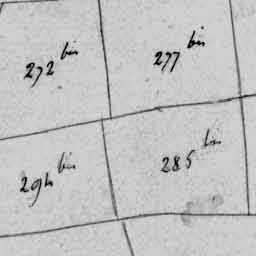 272 bis
277 bis
294 bis
285 bis